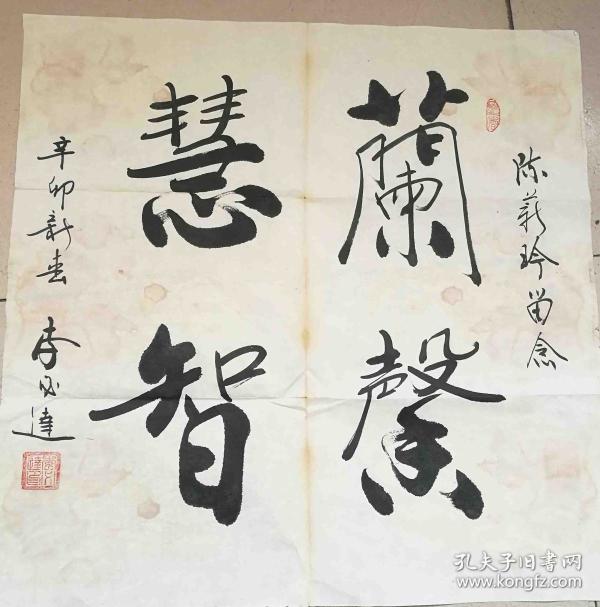 陈薪玲留念
蘭馨
慧智
辛卯新春
李必達
孔夫子旧书网
www.kongfz.com